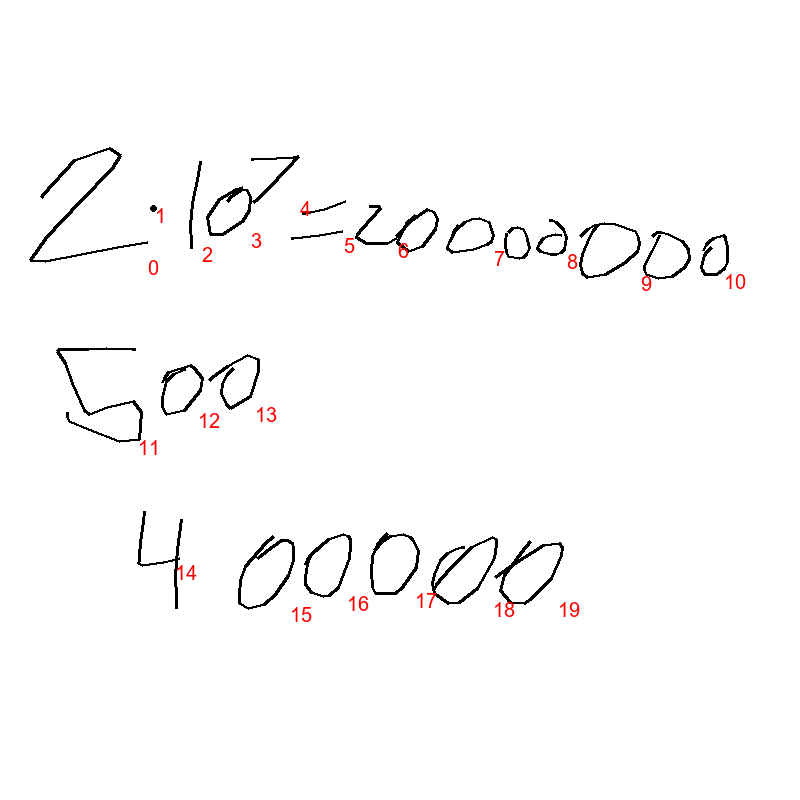 2·10⁷=20000000
0 1 2 3 4 5 6 7 8 9 10
500
11 12 13
400000
14 15 16 17 18 19